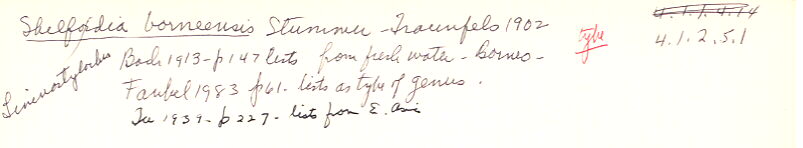 Shelfordia borneensis Stummer-Traunfels 1902
type
4.1.1.4.14
4.1.2.5.1
Limnostylochus
Bock 1913 - p 147 lists from fresh water - Borneo -
Faubel 1983 p 61 - lists as type of genus.
1939 - p 227 - lists from E. Asia